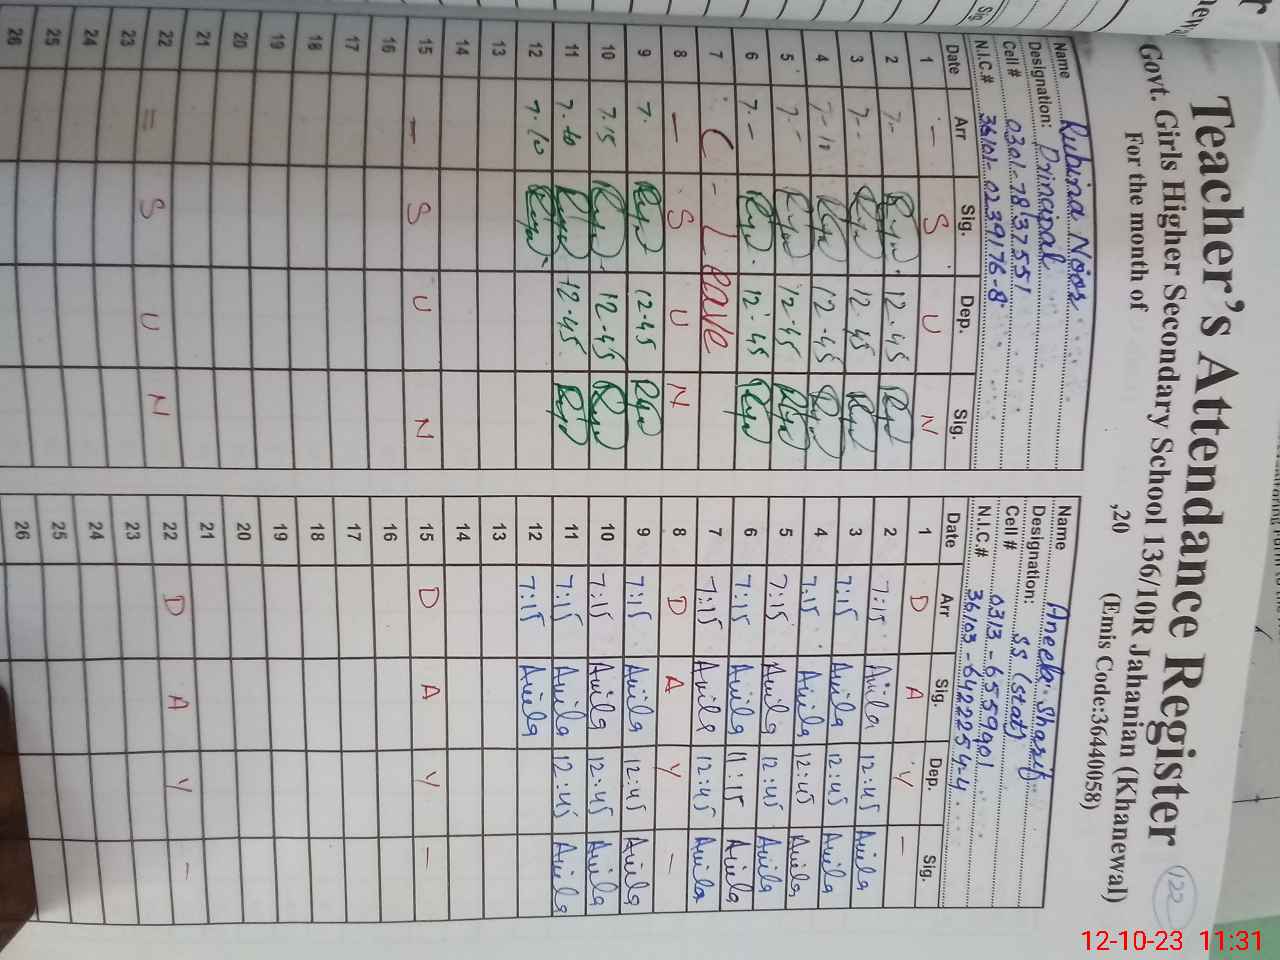 Teacher's Attendance Register
122
Govt. Girls Higher Secondary School 136/10R Jahanian (Khanewal)
For the month of ,20 (Emis Code:36440058)
Name Rubina Noor
Designation: Principal
Cell # 0301-7837551
N.I.C.# 36101-0239176-8
Date Arr Sig. Dep. Sig.
1 — S U N
2 7- 12.45
3 7-- 12.45
4 7-10 12.45
5 7-- 12.45
6 7.- 12.45
7 C - Leave
8 — S U N
9 7. 12.45
10 7.15 12.45
11 7.10 12.45
12 7.10
13
14
15 — S U N
16
17
18
19
20
21
22 = S U N
23
24
25
26
Name Aneela Sharif
Designation: SS (Stat)
Cell # 0313-6559901
N.I.C.# 36103-6422254-4
Date Arr Sig. Dep. Sig.
1 D A Y —
2 7:15 Aiila 12:45 Aiila
3 7:15 Aiila 12:45 Aiila
4 7:15 Aiila 12:45 Aiila
5 7:15 Aiila 12:45 Aiila
6 7:15 Aiila 11:15 Aiila
7 7:15 Aiila 12:45 Aiila
8 D A Y —
9 7:15 Aiila 12:45 Aiila
10 7:15 Aiila 12:45 Aiila
11 7:15 Aiila 12:45 Aiila
12 7:15 Aiila
13
14
15 D A Y —
16
17
18
19
20
21
22 D A Y -
23
24
25
26
12-10-23 11:31